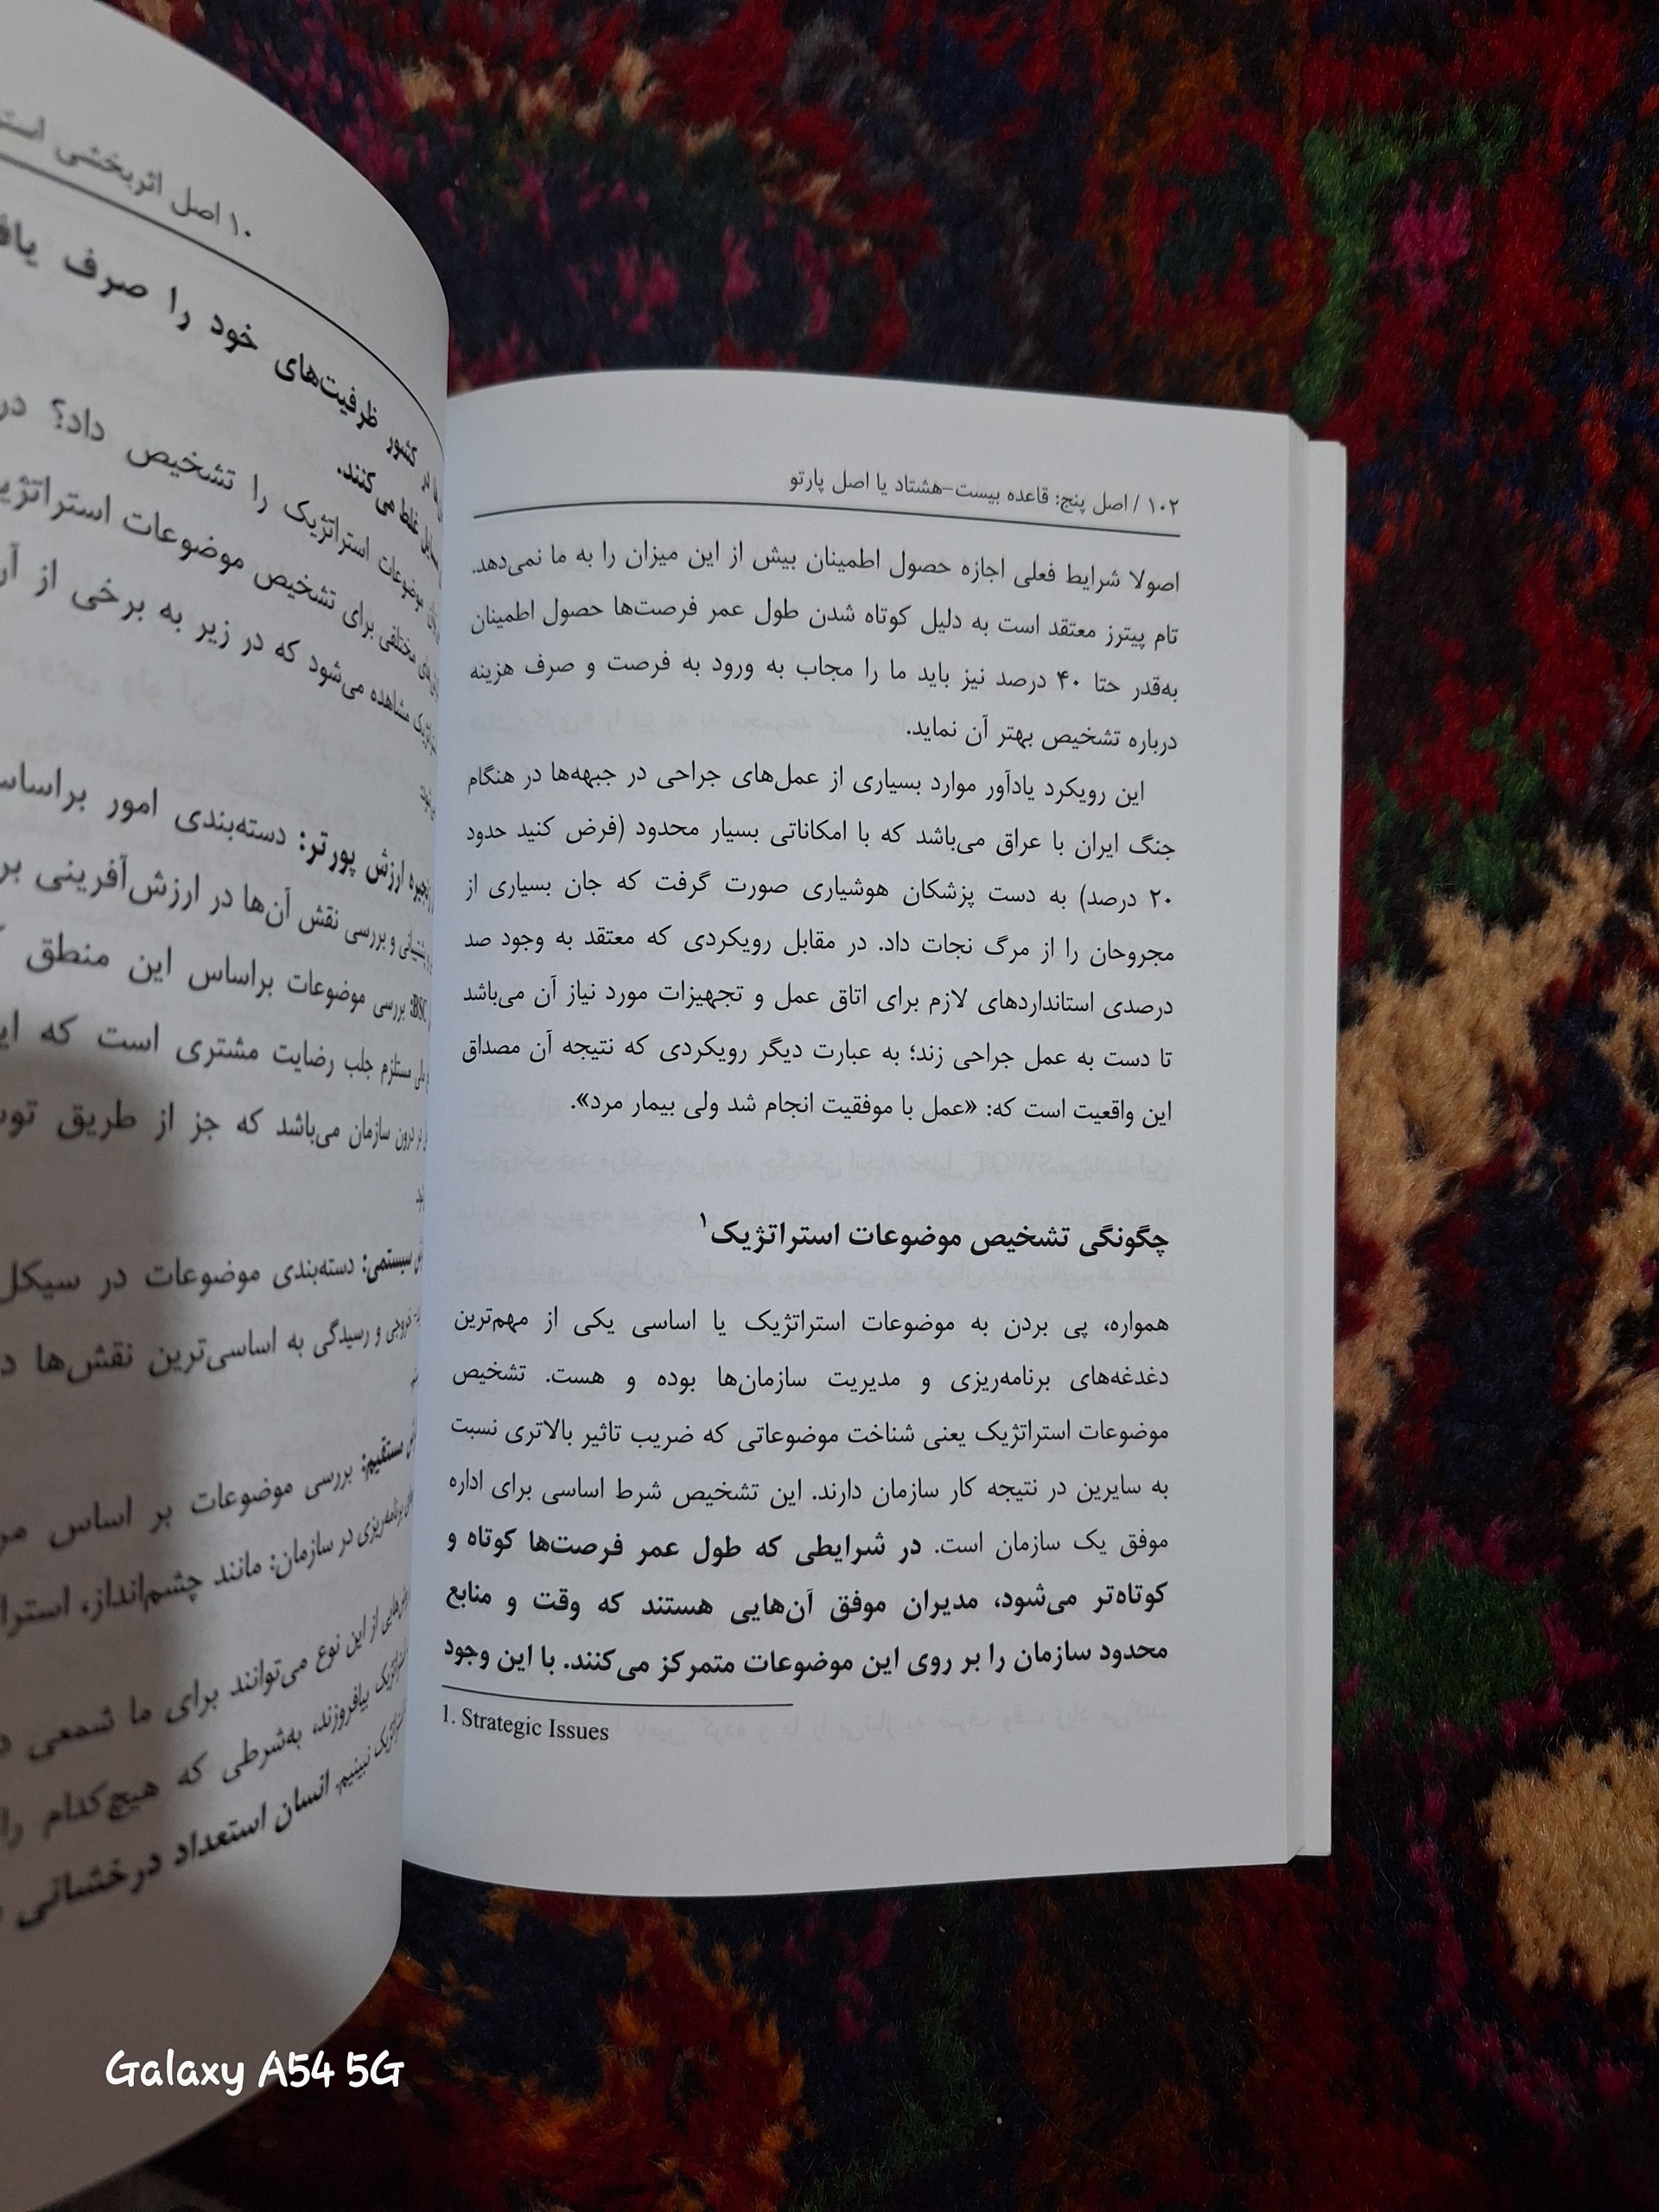 ۱۰۲ / اصل پنج: قاعده بیست-هشتاد یا اصل پارتو
اصولا شرایط فعلی اجازه حصول اطمینان بیش از این میزان را به ما نمی‌دهد.
تام پیترز معتقد است به دلیل کوتاه شدن طول عمر فرصت‌ها حصول اطمینان
به‌قدر حتا ۴۰ درصد نیز باید ما را مجاب به ورود به فرصت و صرف هزینه
درباره تشخیص بهتر آن نماید.
این رویکرد یادآور موارد بسیاری از عمل‌های جراحی در جبهه‌ها در هنگام
جنگ ایران با عراق می‌باشد که با امکاناتی بسیار محدود (فرض کنید حدود
۲۰ درصد) به دست پزشکان هوشیاری صورت گرفت که جان بسیاری از
مجروحان را از مرگ نجات داد. در مقابل رویکردی که معتقد به وجود صد
درصدی استانداردهای لازم برای اتاق عمل و تجهیزات مورد نیاز آن می‌باشد
تا دست به عمل جراحی زند؛ به عبارت دیگر رویکردی که نتیجه آن مصداق
این واقعیت است که: «عمل با موفقیت انجام شد ولی بیمار مرد».
چگونگی تشخیص موضوعات استراتژیک۱
همواره، پی بردن به موضوعات استراتژیک یا اساسی یکی از مهم‌ترین
دغدغه‌های برنامه‌ریزی و مدیریت سازمان‌ها بوده و هست. تشخیص
موضوعات استراتژیک یعنی شناخت موضوعاتی که ضریب تاثیر بالاتری نسبت
به سایرین در نتیجه کار سازمان دارند. این تشخیص شرط اساسی برای اداره
موفق یک سازمان است. در شرایطی که طول عمر فرصت‌ها کوتاه و
کوتاه‌تر می‌شود، مدیران موفق آن‌هایی هستند که وقت و منابع
محدود سازمان را بر روی این موضوعات متمرکز می‌کنند. با این وجود
1. Strategic Issues
۱۰ اصل اثربخشی
کشور ظرفیت‌های خود را صرف
غلط می کنند.
موضوعات استراتژیک را تشخیص داد؟ در
مختلفی برای تشخیص موضوعات
مشاهده می‌شود که در زیر به برخی از
ارزش پورتر: دسته‌بندی امور براساس
و بررسی نقش آن‌ها در ارزش‌آفرینی
BSC: بررسی موضوعات براساس این منطق
مستلزم جلب رضایت مشتری است که
درون سازمان می‌باشد که جز از طریق
سیستمی: دسته‌بندی موضوعات در سیکل
خروجی و رسیدگی به اساسی‌ترین نقش‌ها
مستقیم: بررسی موضوعات بر اساس
برنامه‌ریزی در سازمان: مانند چشم‌انداز،
از این نوع می‌توانند برای ما شمعی
بیافروزند، به‌شرطی که هیچ‌کدام را
نبینیم. انسان استعداد درخشانی
Galaxy A54 5G